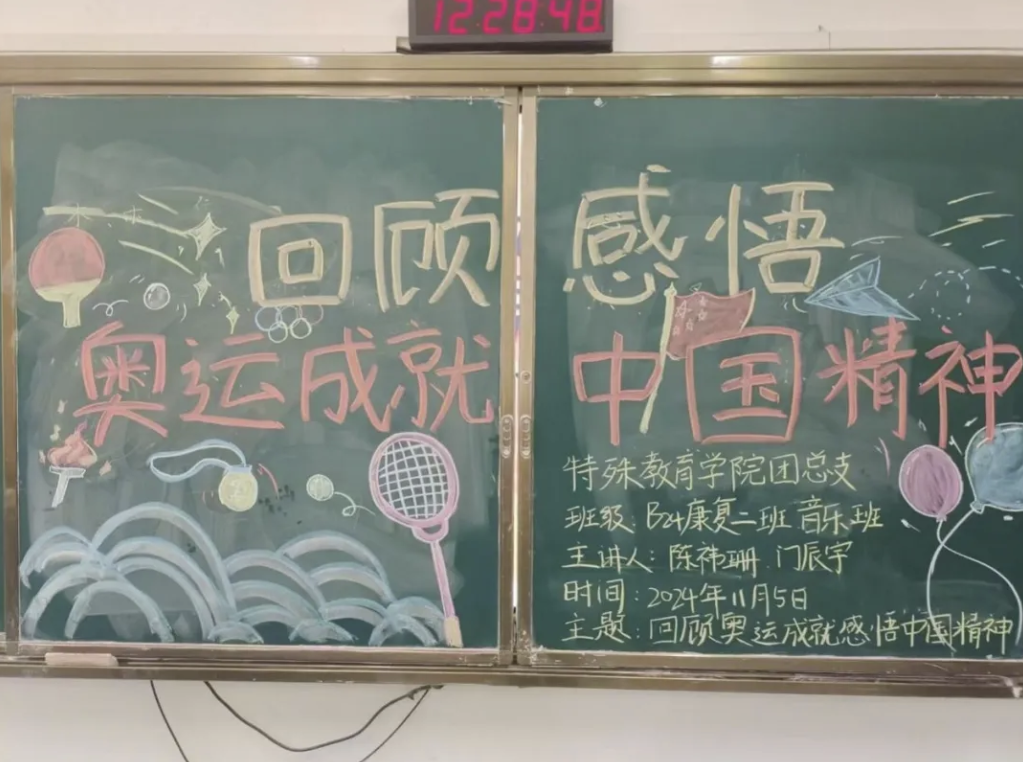 12:28:48
回顾 感悟
奥运成就 中国精神
特殊教育学院团总支
班级:B24康复二班 音乐班
主讲人:陈祎珊 门辰宇
时间:2024年11月5日
主题:回顾奥运成就感悟中国精神